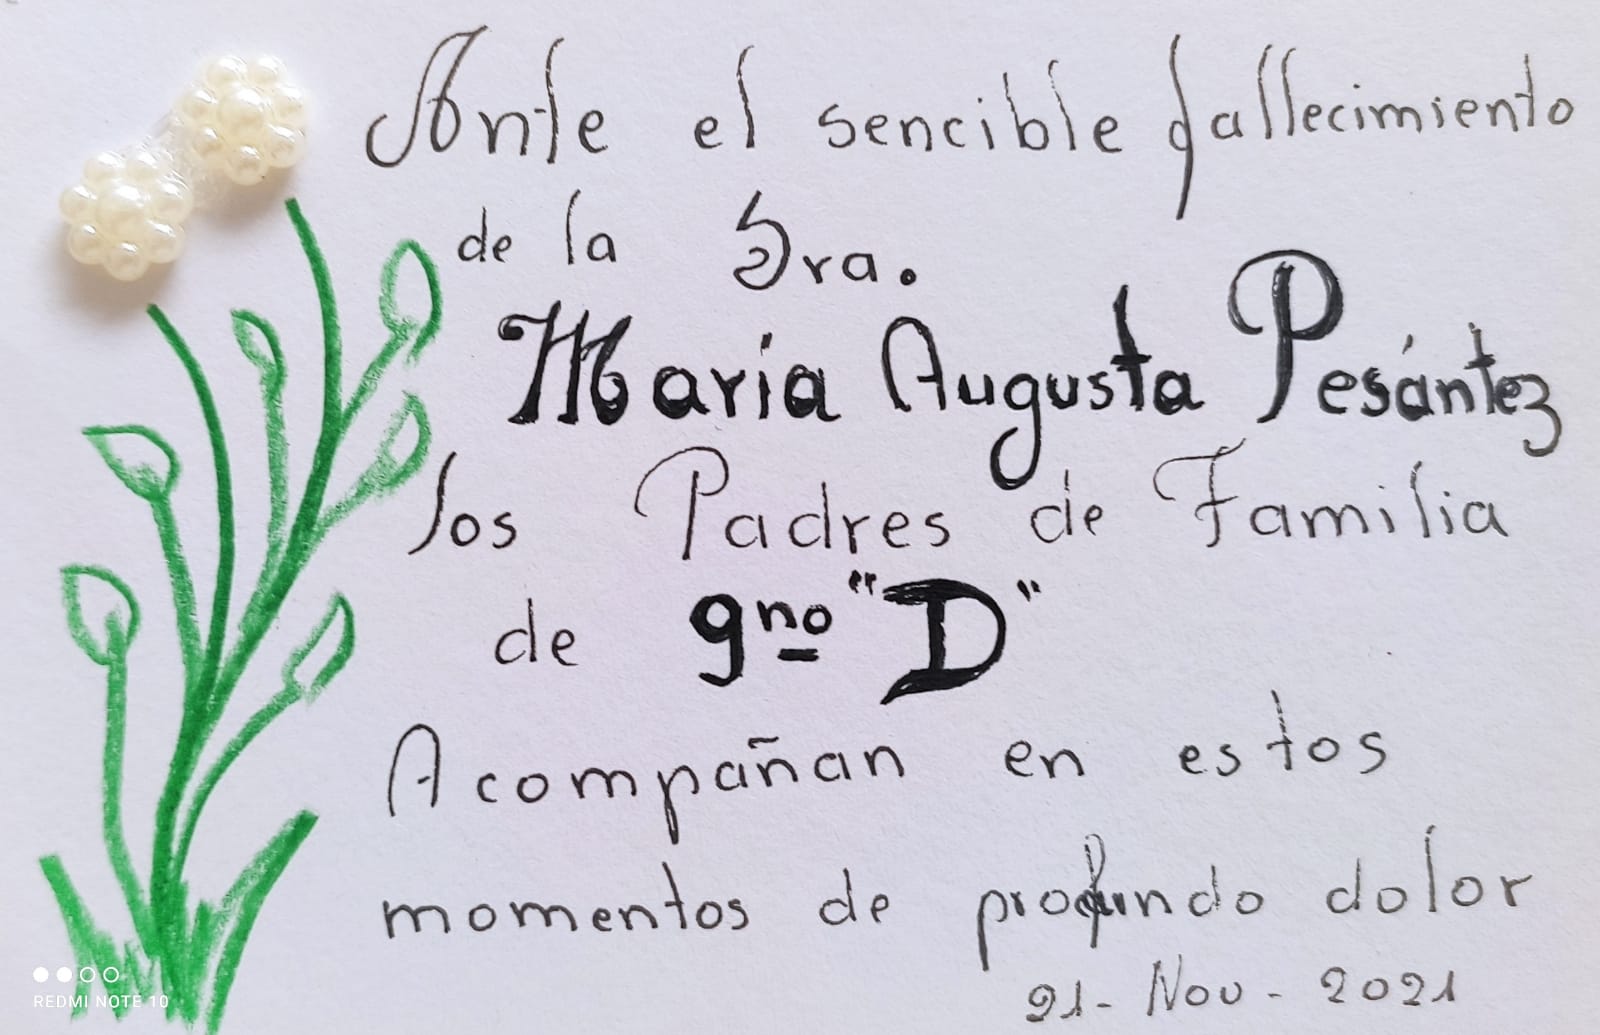 Ante el sencible fallecimiento
de la Sra.
Maria Augusta Pesántez
los Padres de Familia
de 9no "D"
Acompañan en estos
momentos de profundo dolor
21-Nov-2021
REDMI NOTE 10